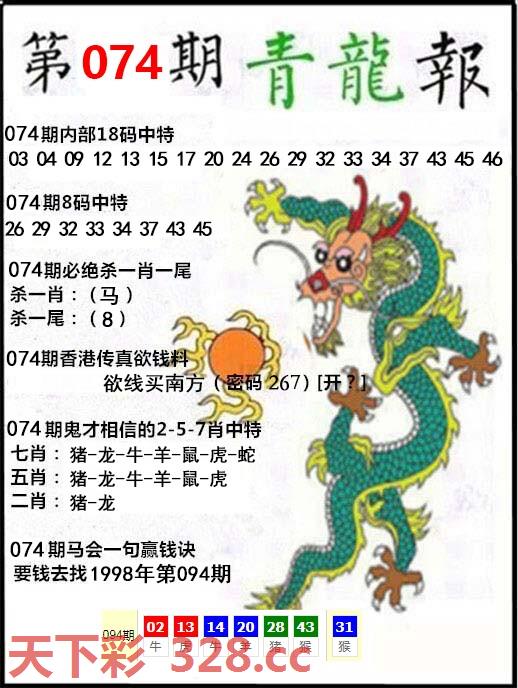 第074期 青龍報
074期内部18码中特
03 04 09 12 13 15 17 20 24 26 29 32 33 34 37 43 45 46
074期8码中特
26 29 32 33 34 37 43 45
074期必绝杀一肖一尾
杀一肖：（马）
杀一尾：（8）
074期香港传真欲钱料
欲线买南方（密码 267）[开？]
074期鬼才相信的2-5-7肖中特
七肖：猪-龙-牛-羊-鼠-虎-蛇
五肖：猪-龙-牛-羊-鼠-虎
二肖：猪-龙
074期马会一句赢钱诀
要钱去找1998年第094期
094期 02 13 14 20 28 43 31
牛 虎 牛 羊 猪 猴 猴
天下彩 328.cc